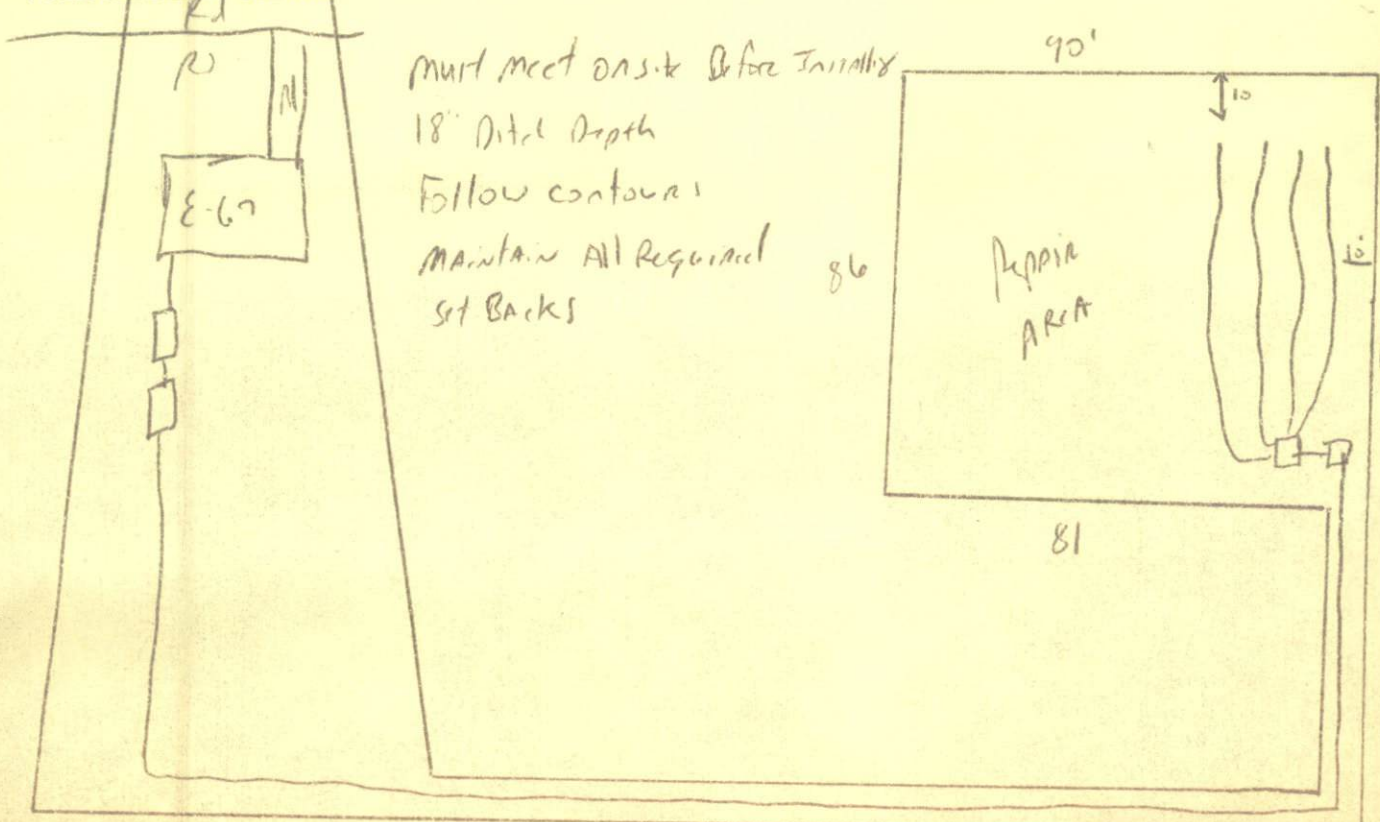 Rd
Must Meet onsite Before Installing
18" Ditch Depth
Follow contours
MAintAin All Required
set BAcks
90'
10
86
Repair
AREA
10'
81